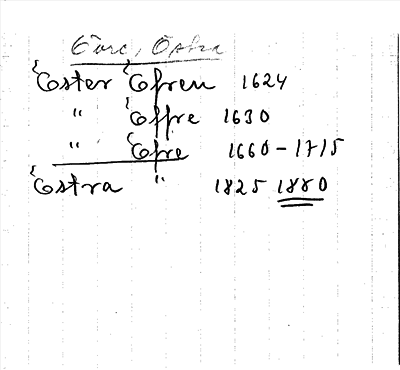 Övre, Östra
Öster Öfren 1624
" Öffre 1630
" Öfre 1660-1715
Östra " 1825 1880